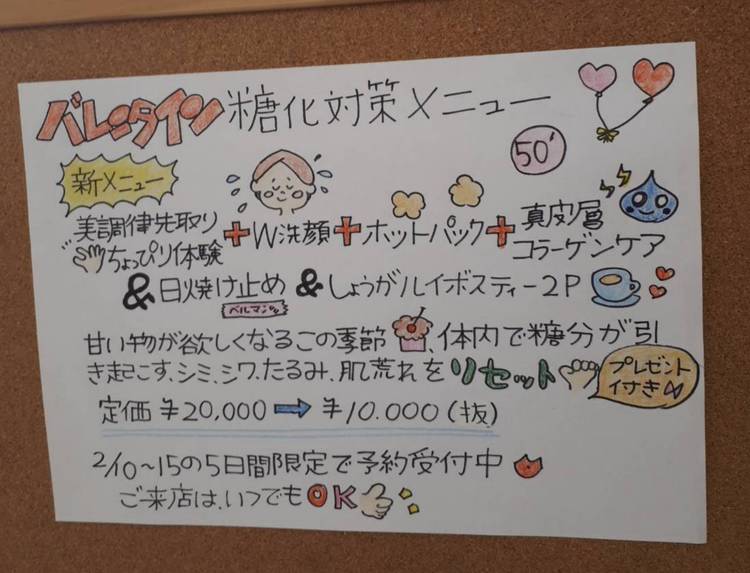 バレンタイン糖化対策メニュー
50'
新メニュー
美調律先取り
ちょっぴり体験
+W洗顔+ホットパック+
真皮層
コラーゲンケア
&日焼け止め&しょうがルイボスティー2P
ベルマン
甘い物が欲しくなるこの季節、体内で糖分が引
き起こす、シミ、シワ、たるみ、肌荒れをリセット
プレゼント
付き
定価¥20,000→¥10.000(抜)
2/10~15の5日間限定で予約受付中
ご来店は、いつでもOK